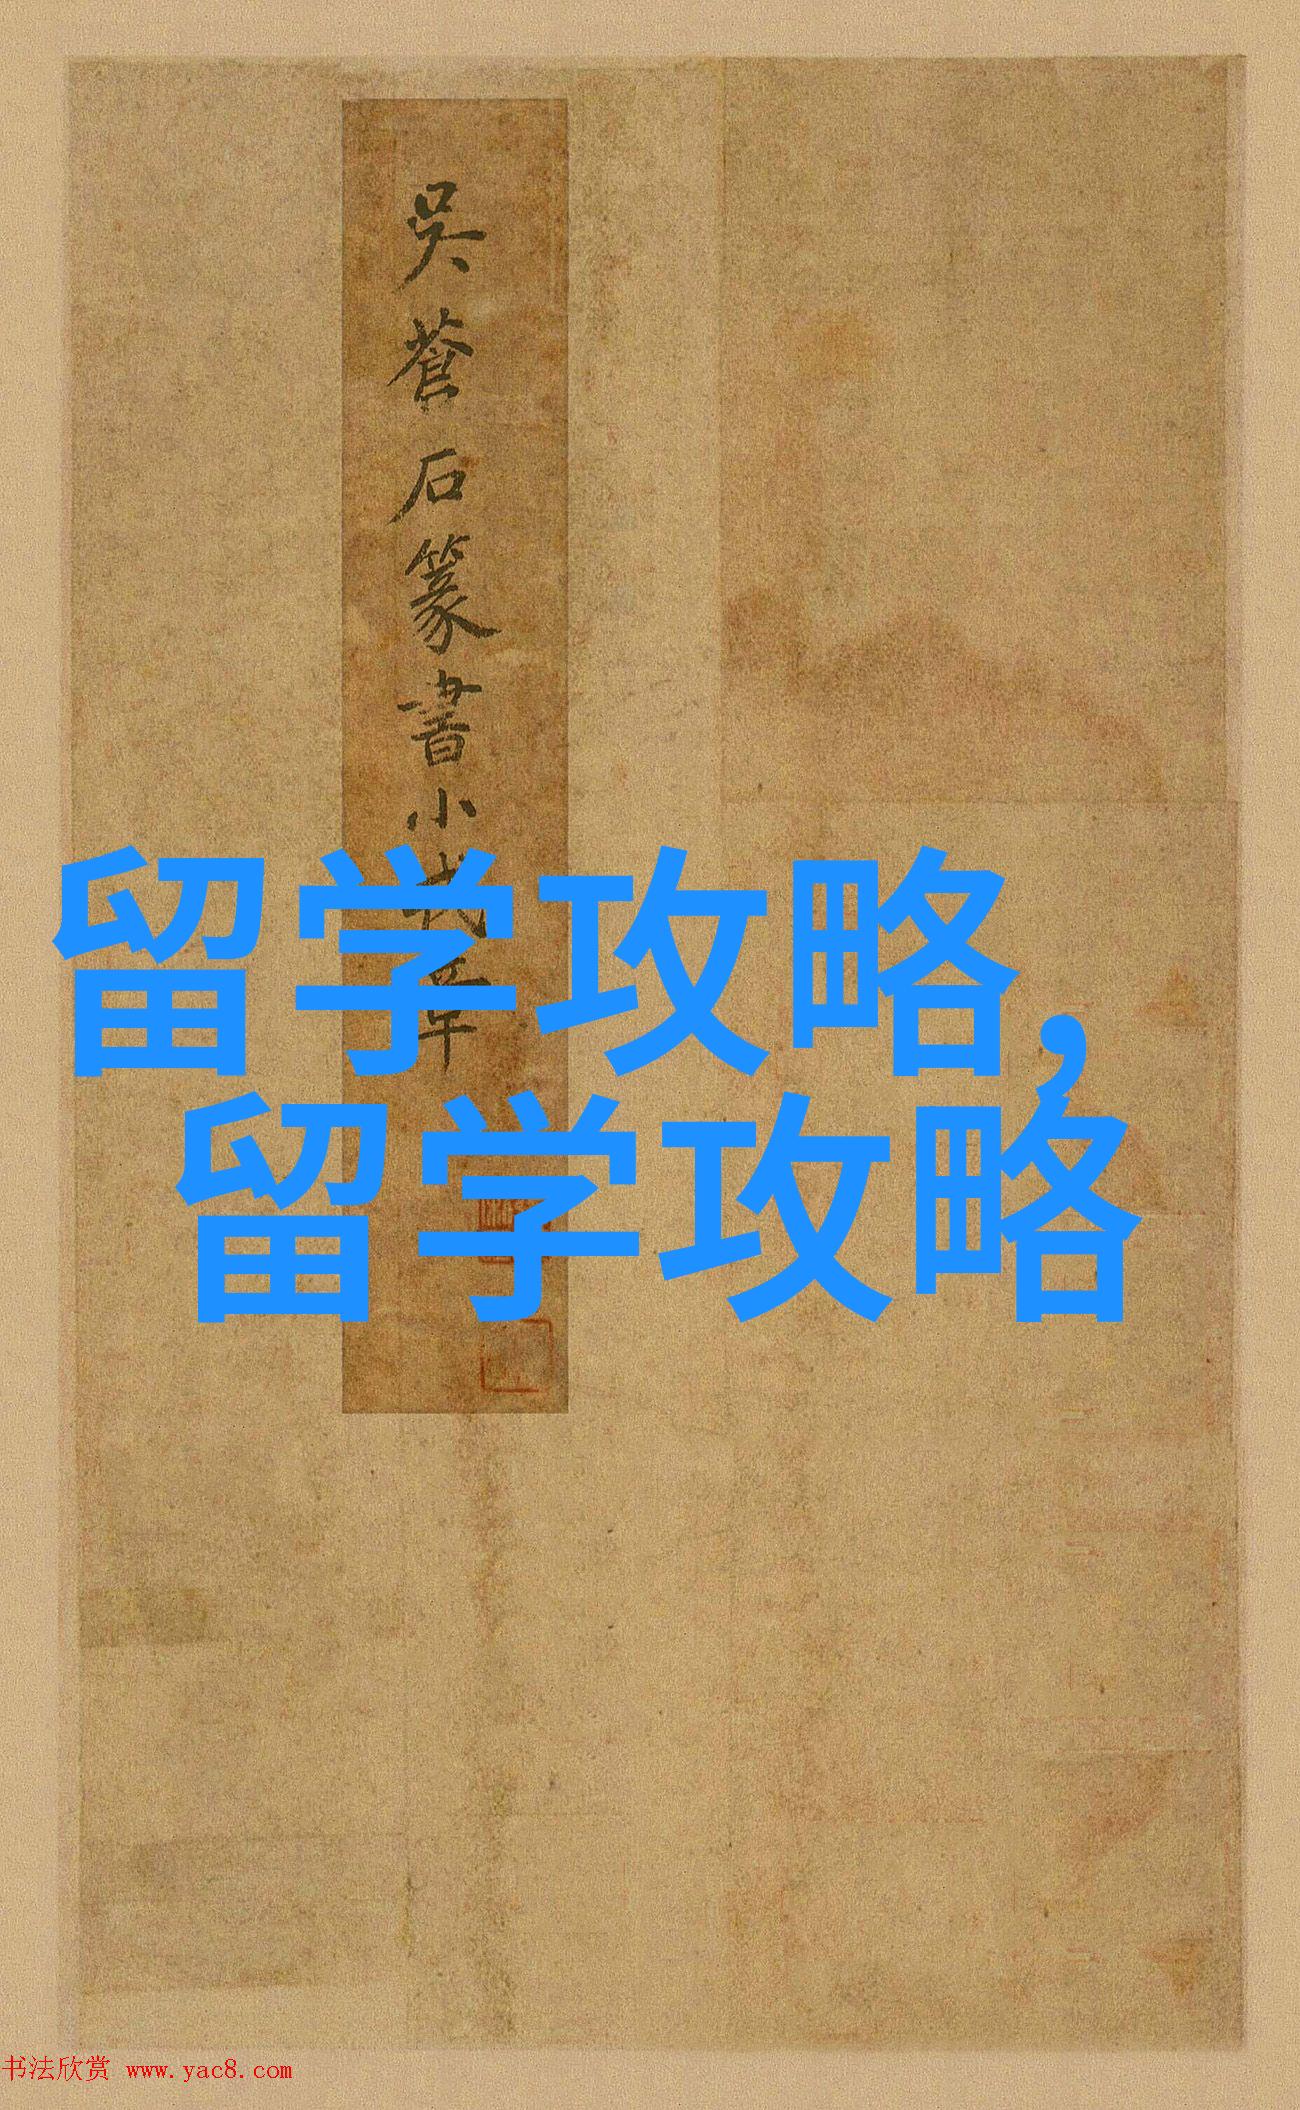 吳蒼石篆書小戎章
留学攻略,
留学攻略
书法欣赏 www.yac8.com